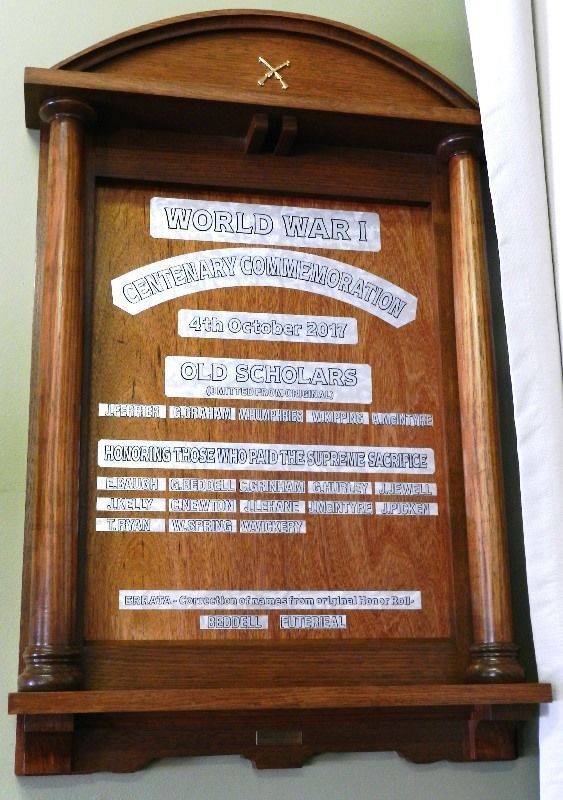 WORLD WAR I
CENTENARY COMMEMORATION
4th October 2017
OLD SCHOLARS
(OMITTED FROM ORIGINAL)
J.PERRIER G.GRAHAM W.KIPPING A.McINTYRE
HONORING THOSE WHO PAID THE SUPREME SACRIFICE
E.BAUGH G.BEDDELL G.HURLEY J.JEWELL
J.KELLY C.NEWTON J.LEHANE J.McINTYRE J.PICKEN
T.RYAN W.SPRING W.VICKERY
ERRATA - Correction of names from original Honor Roll-
BEDDELL FUTERIEAL